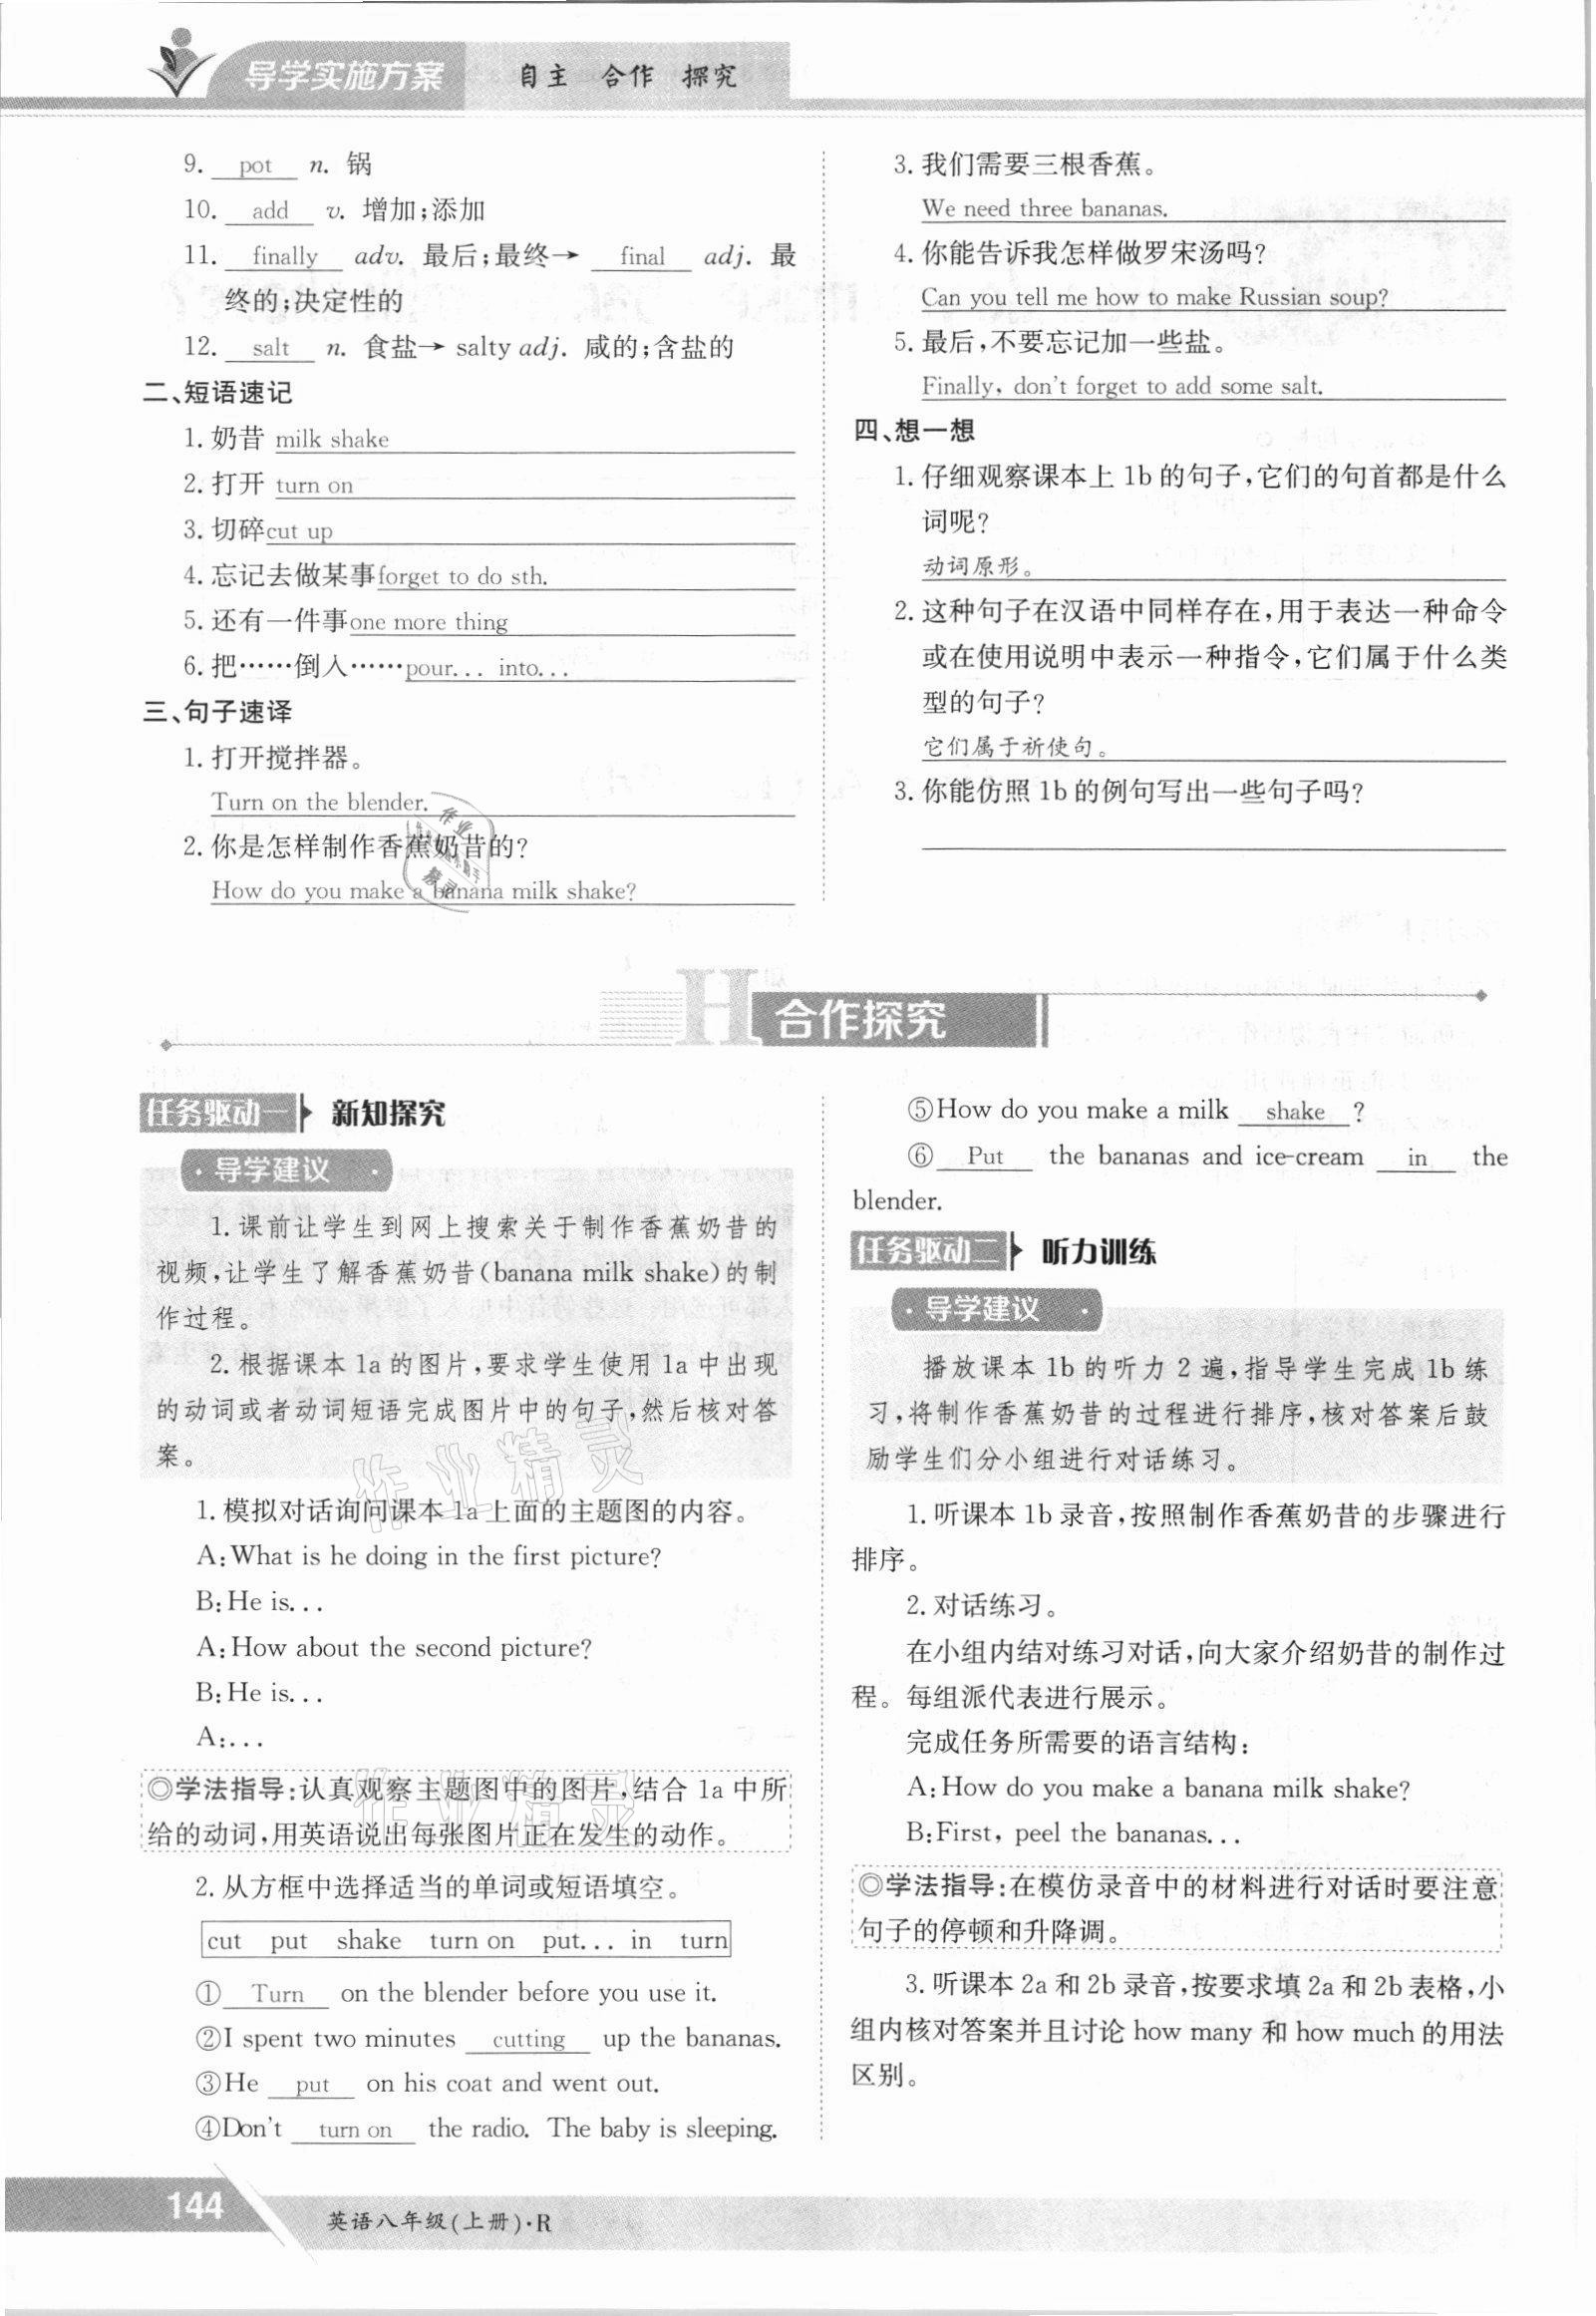 导学实施方案
自主 合作 探究
9. pot n. 锅
10. add v. 增加;添加
11. finally adv. 最后;最终→ final adj. 最
终的;决定性的
12. salt n. 食盐→ salty adj. 咸的;含盐的
二、短语速记
1. 奶昔 milk shake
2. 打开 turn on
3. 切碎cut up
4. 忘记去做某事forget to do sth.
5. 还有一件事one more thing
6. 把……倒入……pour... into...
三、句子速译
1. 打开搅拌器。
Turn on the blender.
2. 你是怎样制作香蕉奶昔的?
How do you make a banana milk shake?
3. 我们需要三根香蕉。
We need three bananas.
4. 你能告诉我怎样做罗宋汤吗?
Can you tell me how to make Russian soup?
5. 最后,不要忘记加一些盐。
Finally, don't forget to add some salt.
四、想一想
1. 仔细观察课本上 1b 的句子,它们的句首都是什么
词呢?
动词原形。
2. 这种句子在汉语中同样存在,用于表达一种命令
或在使用说明中表示一种指令,它们属于什么类
型的句子?
它们属于祈使句。
3. 你能仿照 1b 的例句写出一些句子吗?
H 合作探究
任务驱动一 新知探究
·导学建议·
1. 课前让学生到网上搜索关于制作香蕉奶昔的
视频,让学生了解香蕉奶昔(banana milk shake)的制
作过程。
2. 根据课本 1a 的图片,要求学生使用 1a 中出现
的动词或者动词短语完成图片中的句子,然后核对答
案。
1. 模拟对话询问课本 1a 上面的主题图的内容。
A:What is he doing in the first picture?
B:He is...
A:How about the second picture?
B:He is...
A:...
◎学法指导:认真观察主题图中的图片,结合 1a 中所
给的动词,用英语说出每张图片正在发生的动作。
2. 从方框中选择适当的单词或短语填空。
cut put shake turn on put... in turn
① Turn on the blender before you use it.
②I spent two minutes cutting up the bananas.
③He put on his coat and went out.
④Don't turn on the radio. The baby is sleeping.
⑤How do you make a milk shake ?
⑥ Put the bananas and ice-cream in the
blender.
任务驱动二 听力训练
·导学建议·
播放课本 1b 的听力 2 遍,指导学生完成 1b 练
习,将制作香蕉奶昔的过程进行排序,核对答案后鼓
励学生们分小组进行对话练习。
1. 听课本 1b 录音,按照制作香蕉奶昔的步骤进行
排序。
2. 对话练习。
在小组内结对练习对话,向大家介绍奶昔的制作过
程。每组派代表进行展示。
完成任务所需要的语言结构:
A:How do you make a banana milk shake?
B:First, peel the bananas...
◎学法指导:在模仿录音中的材料进行对话时要注意
句子的停顿和升降调。
3. 听课本 2a 和 2b 录音,按要求填 2a 和 2b 表格,小
组内核对答案并且讨论 how many 和 how much 的用法
区别。
作业精灵
作业精灵
144
英语八年级(上册)·R